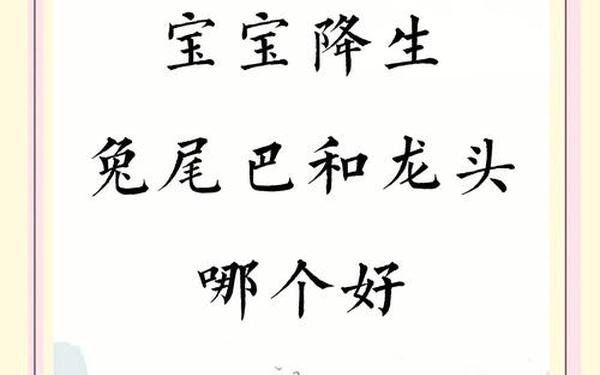 宝宝降生
兔尾巴和龙头
哪个好